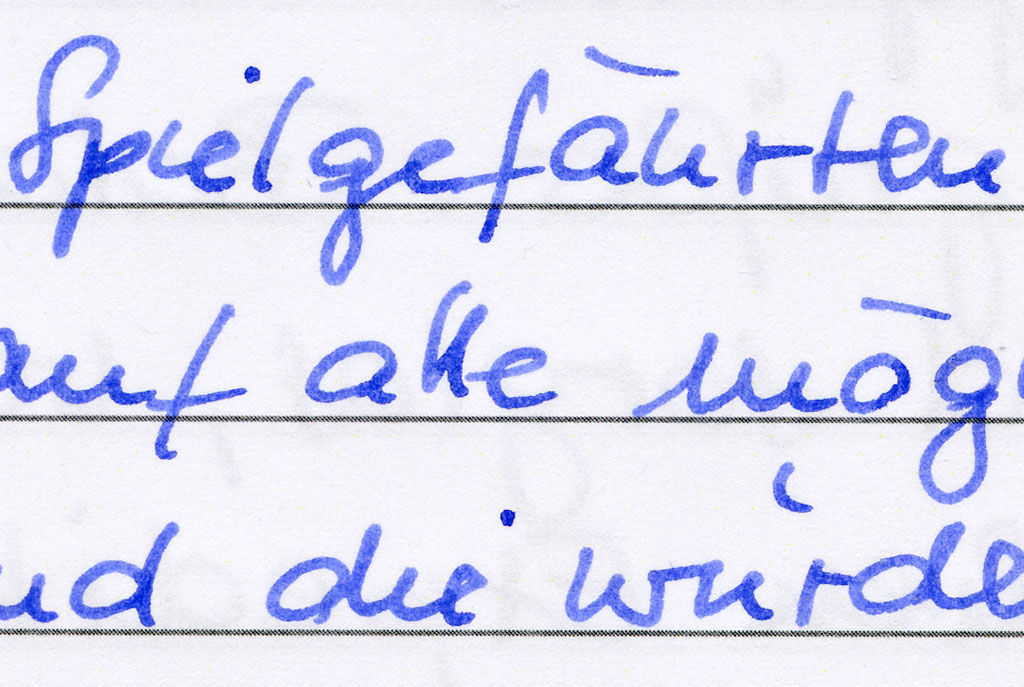 Spielgefährten
auf alle mög
nd die würde